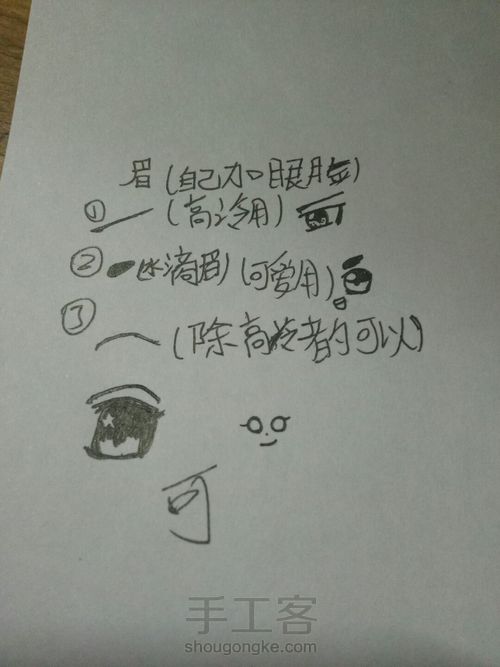 眉(自己加眼脸)
①(高冷用)
②(水滴眉)(可爱用)
③(除高冷者的可以)
可
手工客
shougongke.com